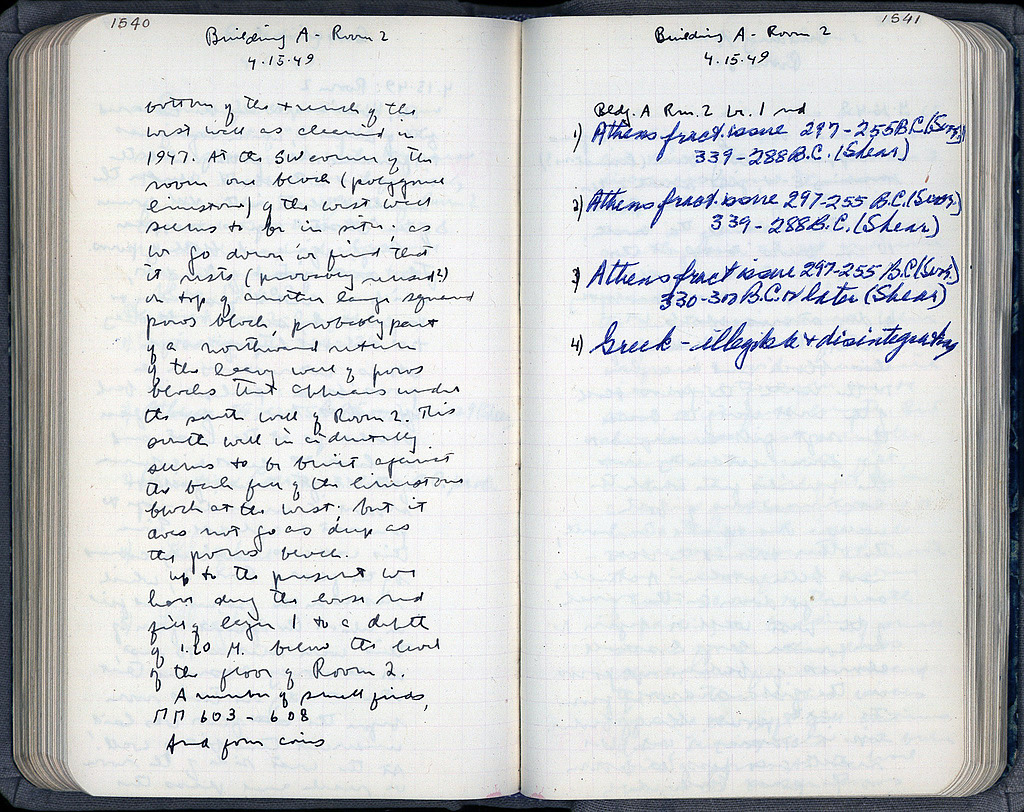 1540
Building A - Room 2
4.15.49
bottom of the trench of the
west wall as cleaned in
1947. At the SW corner of the
room one block (polygonal
limestone) of the west wall
seems to be in situ; as
we go down we find that
it rests (probably reused?)
on top of another large squared
poros block, probably part
of a northward return
of the heavy wall of poros
blocks that appears under
the south wall of Room 2. This
south wall incidentally
seems to be built against
the back face of the limestone
block at the west, but it
does not go as deep as
the poros block.
up to the present we
have dug the loose red
fill of layer 1 to a depth
of 1.20 M. below the level
of the floor of Room 2.
A number of small finds,
ΜΠ 603 - 608
And four coins
1541
Building A - Room 2
4.15.49
Bldg. A Rm. 2 Lr. 1 red
1) Athens fract. issue 297-255 B.C. (Svor.)
339-288 B.C. (Shear)
2) Athens fract. issue 297-255 B.C. (Svor.)
339-288 B.C. (Shear)
3) Athens fract issue 297-255 B.C. (Svor.)
330-300 B.C. or later (Shear)
4) Greek - illegible + disintegrating